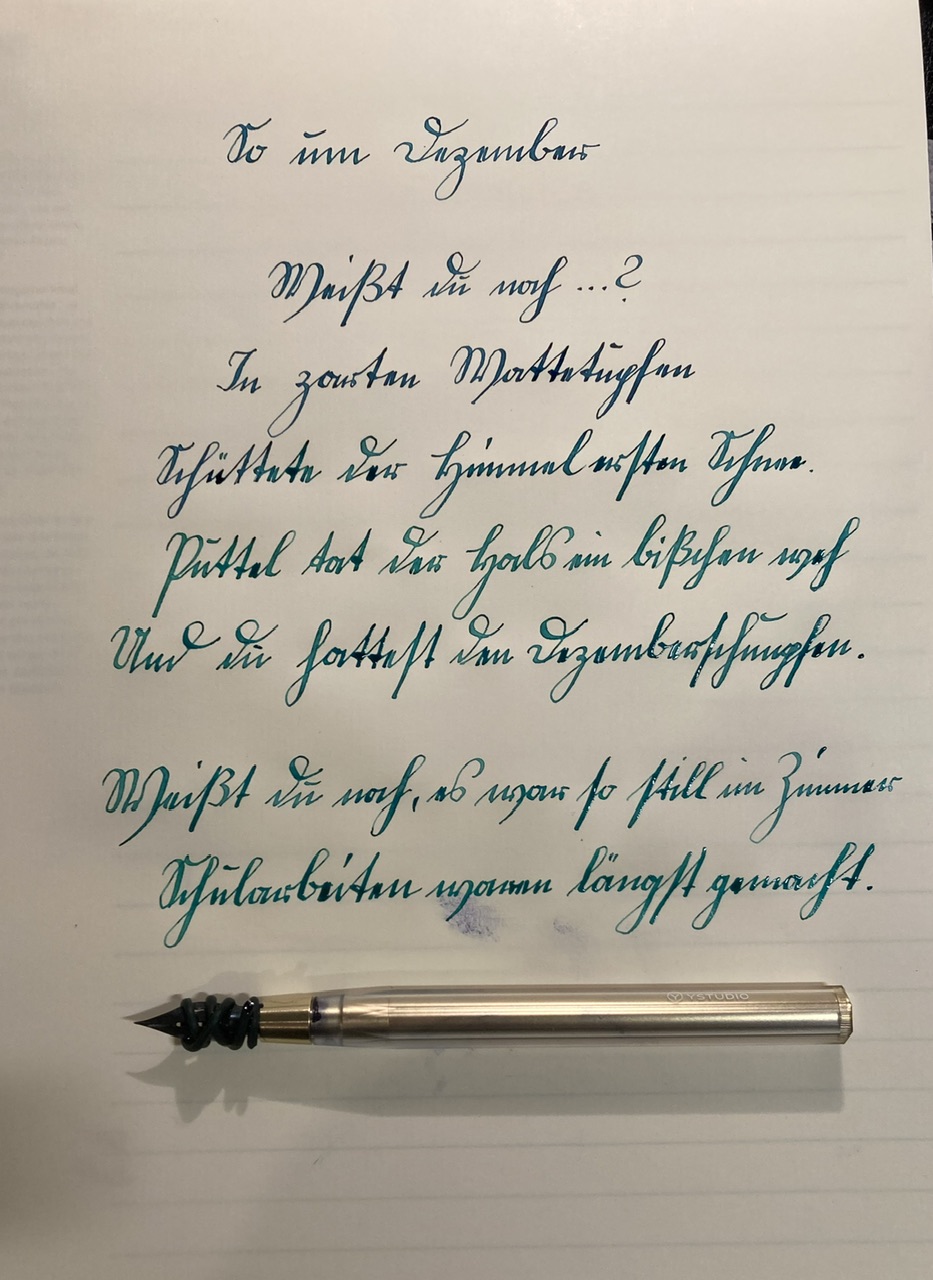 So um Dezember
Weißt du noch ...?
In zarten Wattetupfen
Schüttete der Himmel ersten Schnee.
Puttel tat der Hals ein bißchen weh
Und du hattest den Dezemberschnupfen.
Weißt du noch, es war so still im Zimmer
Schularbeiten waren längst gemacht.
YSTUDIO